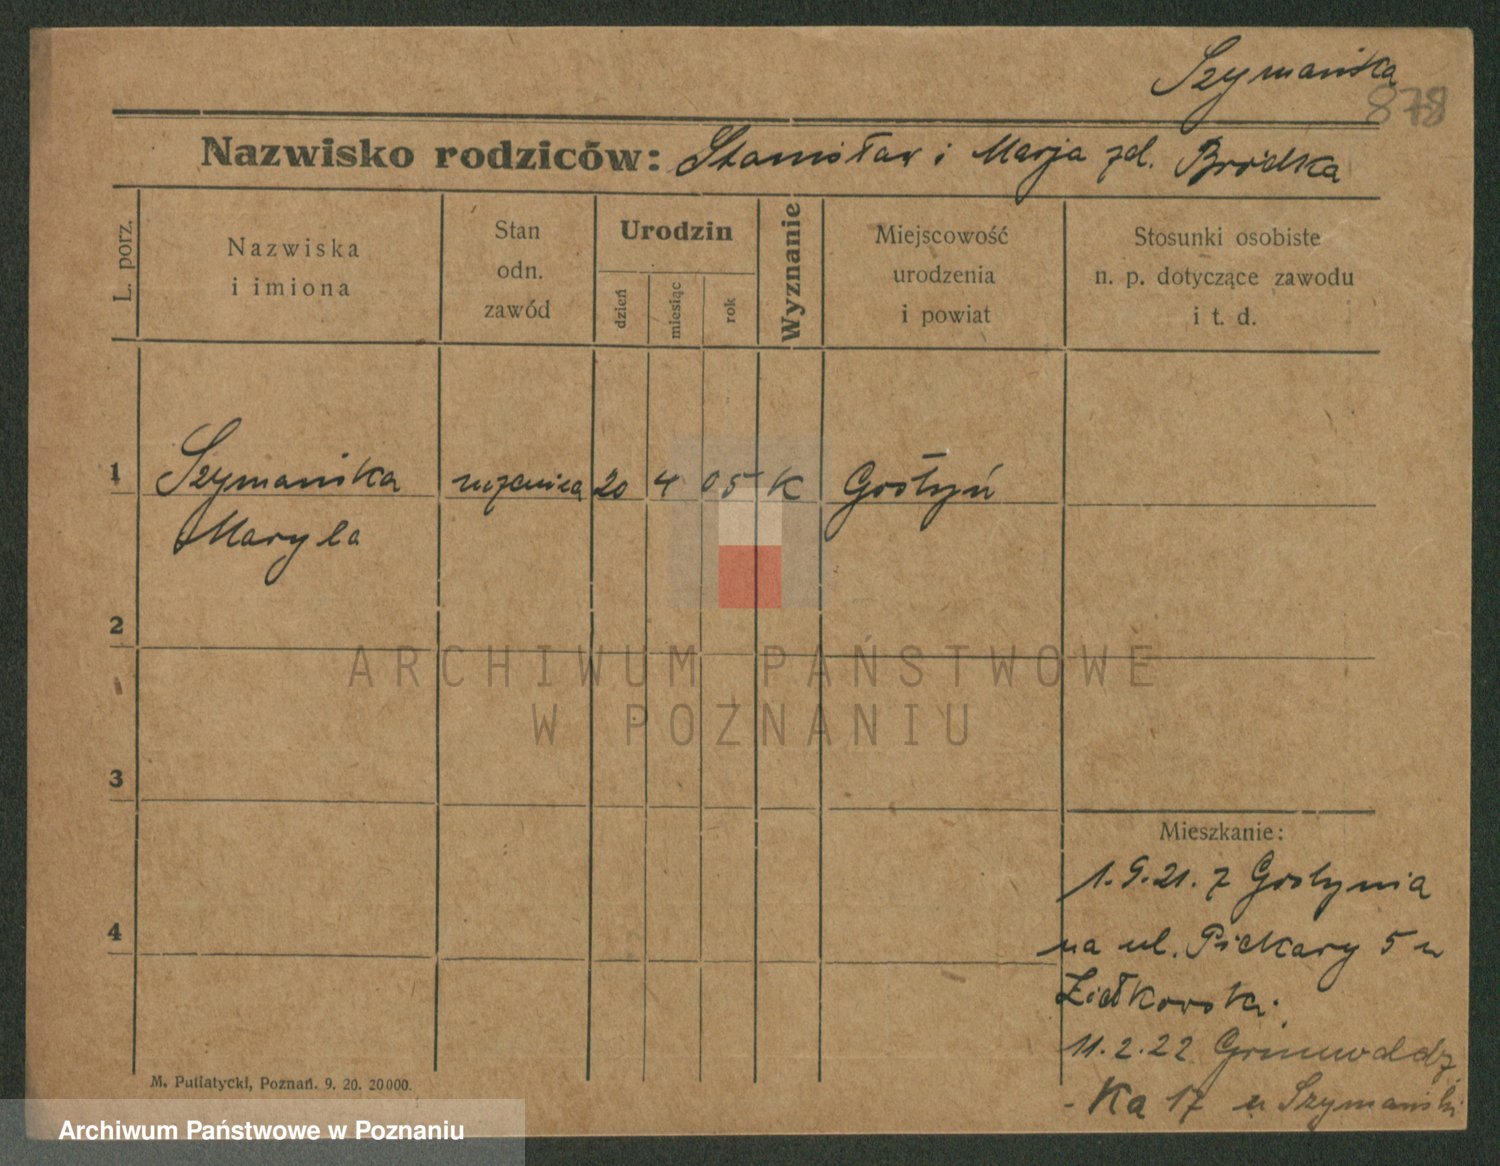 Szymańska
878
Nazwisko rodziców: Stanisław i Marja zd. Bródka
L. porz.
Nazwiska
i imiona
Stan
odn.
zawód
Urodzin
dzień
miesiąc
rok
Wyznanie
Miejscowość
urodzenia
i powiat
Stosunki osobiste
n. p. dotyczące zawodu
i t. d.
1 Szymańska uczenica 20 4 05 K Gostyń
Maryla
2
ARCHIWUM PAŃSTWOWE
W POZNANIU
3
Mieszkanie:
1.9.21. z Gostynia
4
na ul. Piekary 5 u
Ziółkowski.
11.2.22 Grunwaldz
-ka 17 u Szymański
M. Putiatycki, Poznań. 9. 20. 20000.
Archiwum Państwowe w Poznaniu